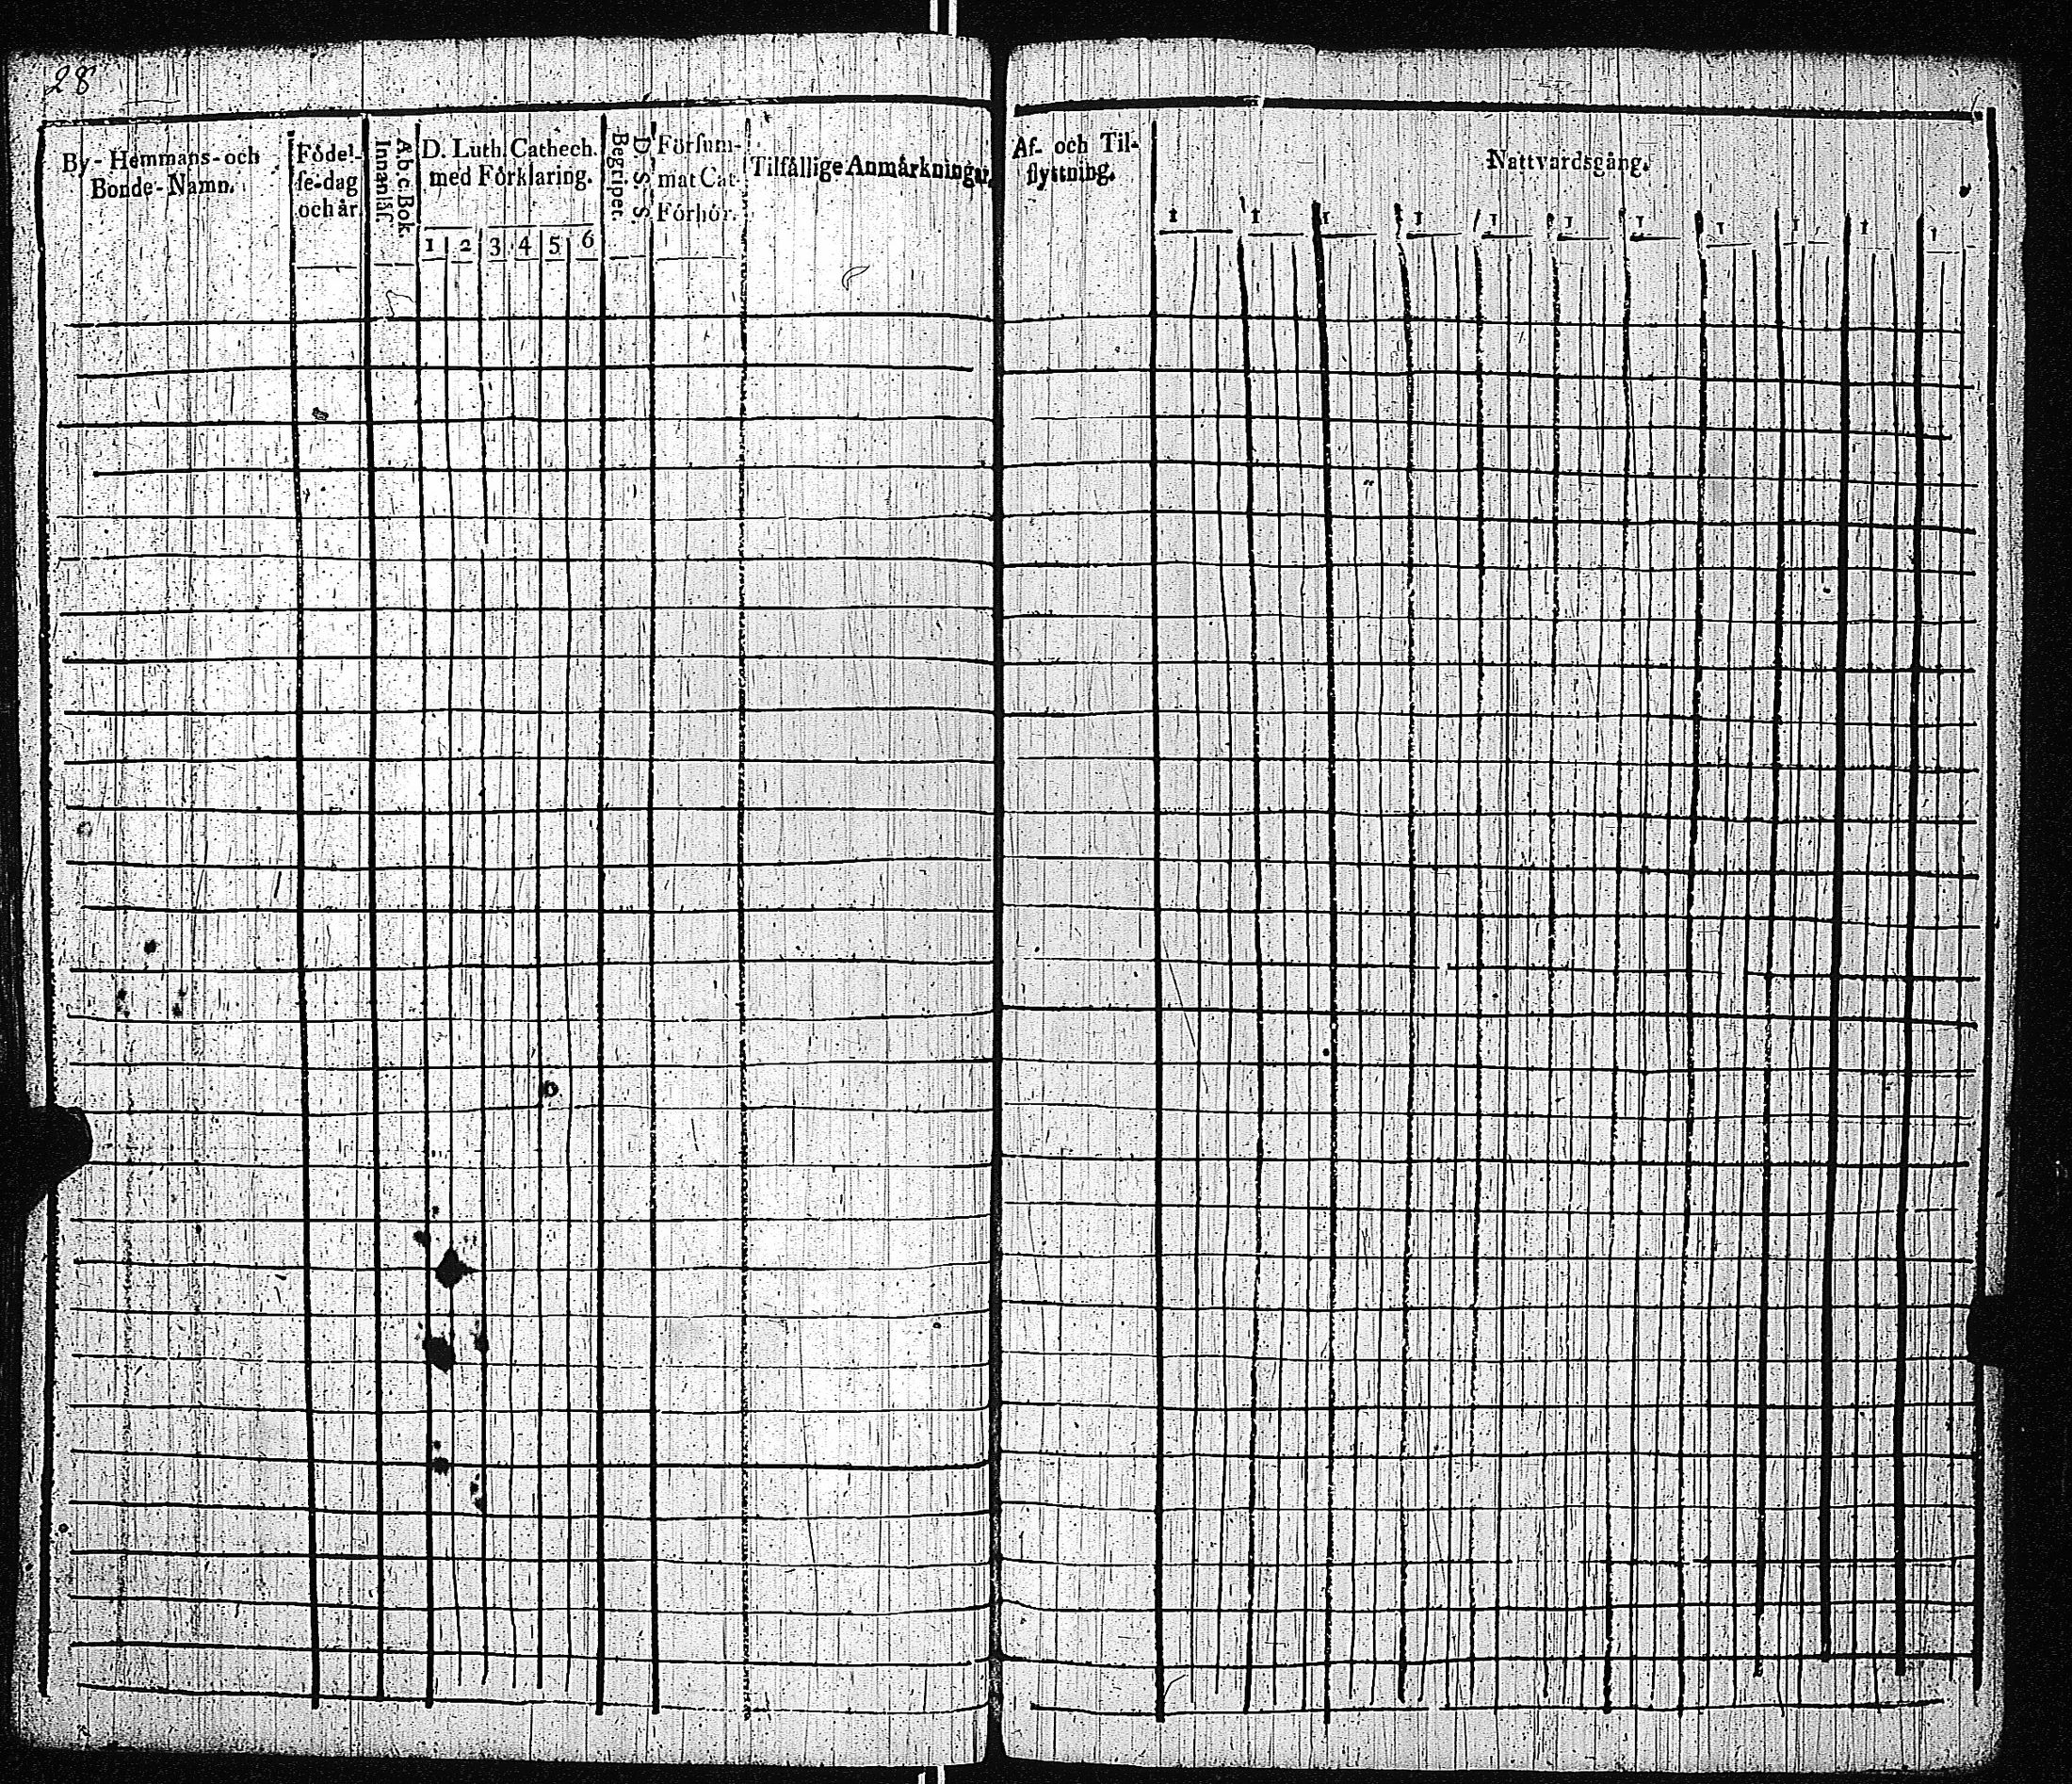 28
By- Hemmans- och
Bonde-Namn.
Födel-
se-dag
och år.
A b c Bok.
Innanläs.
D. Luth. Cathech.
med Förklaring.
1 2 3 4 5 6
D. S. S.
Begriper.
Försum-
mat Cat-
Förhör.
Tilfällige Anmärkningar.
Af- och Til-
flyttning.
Nattvardsgång.
1 1 1 1 1 1 1 1 1 1 1